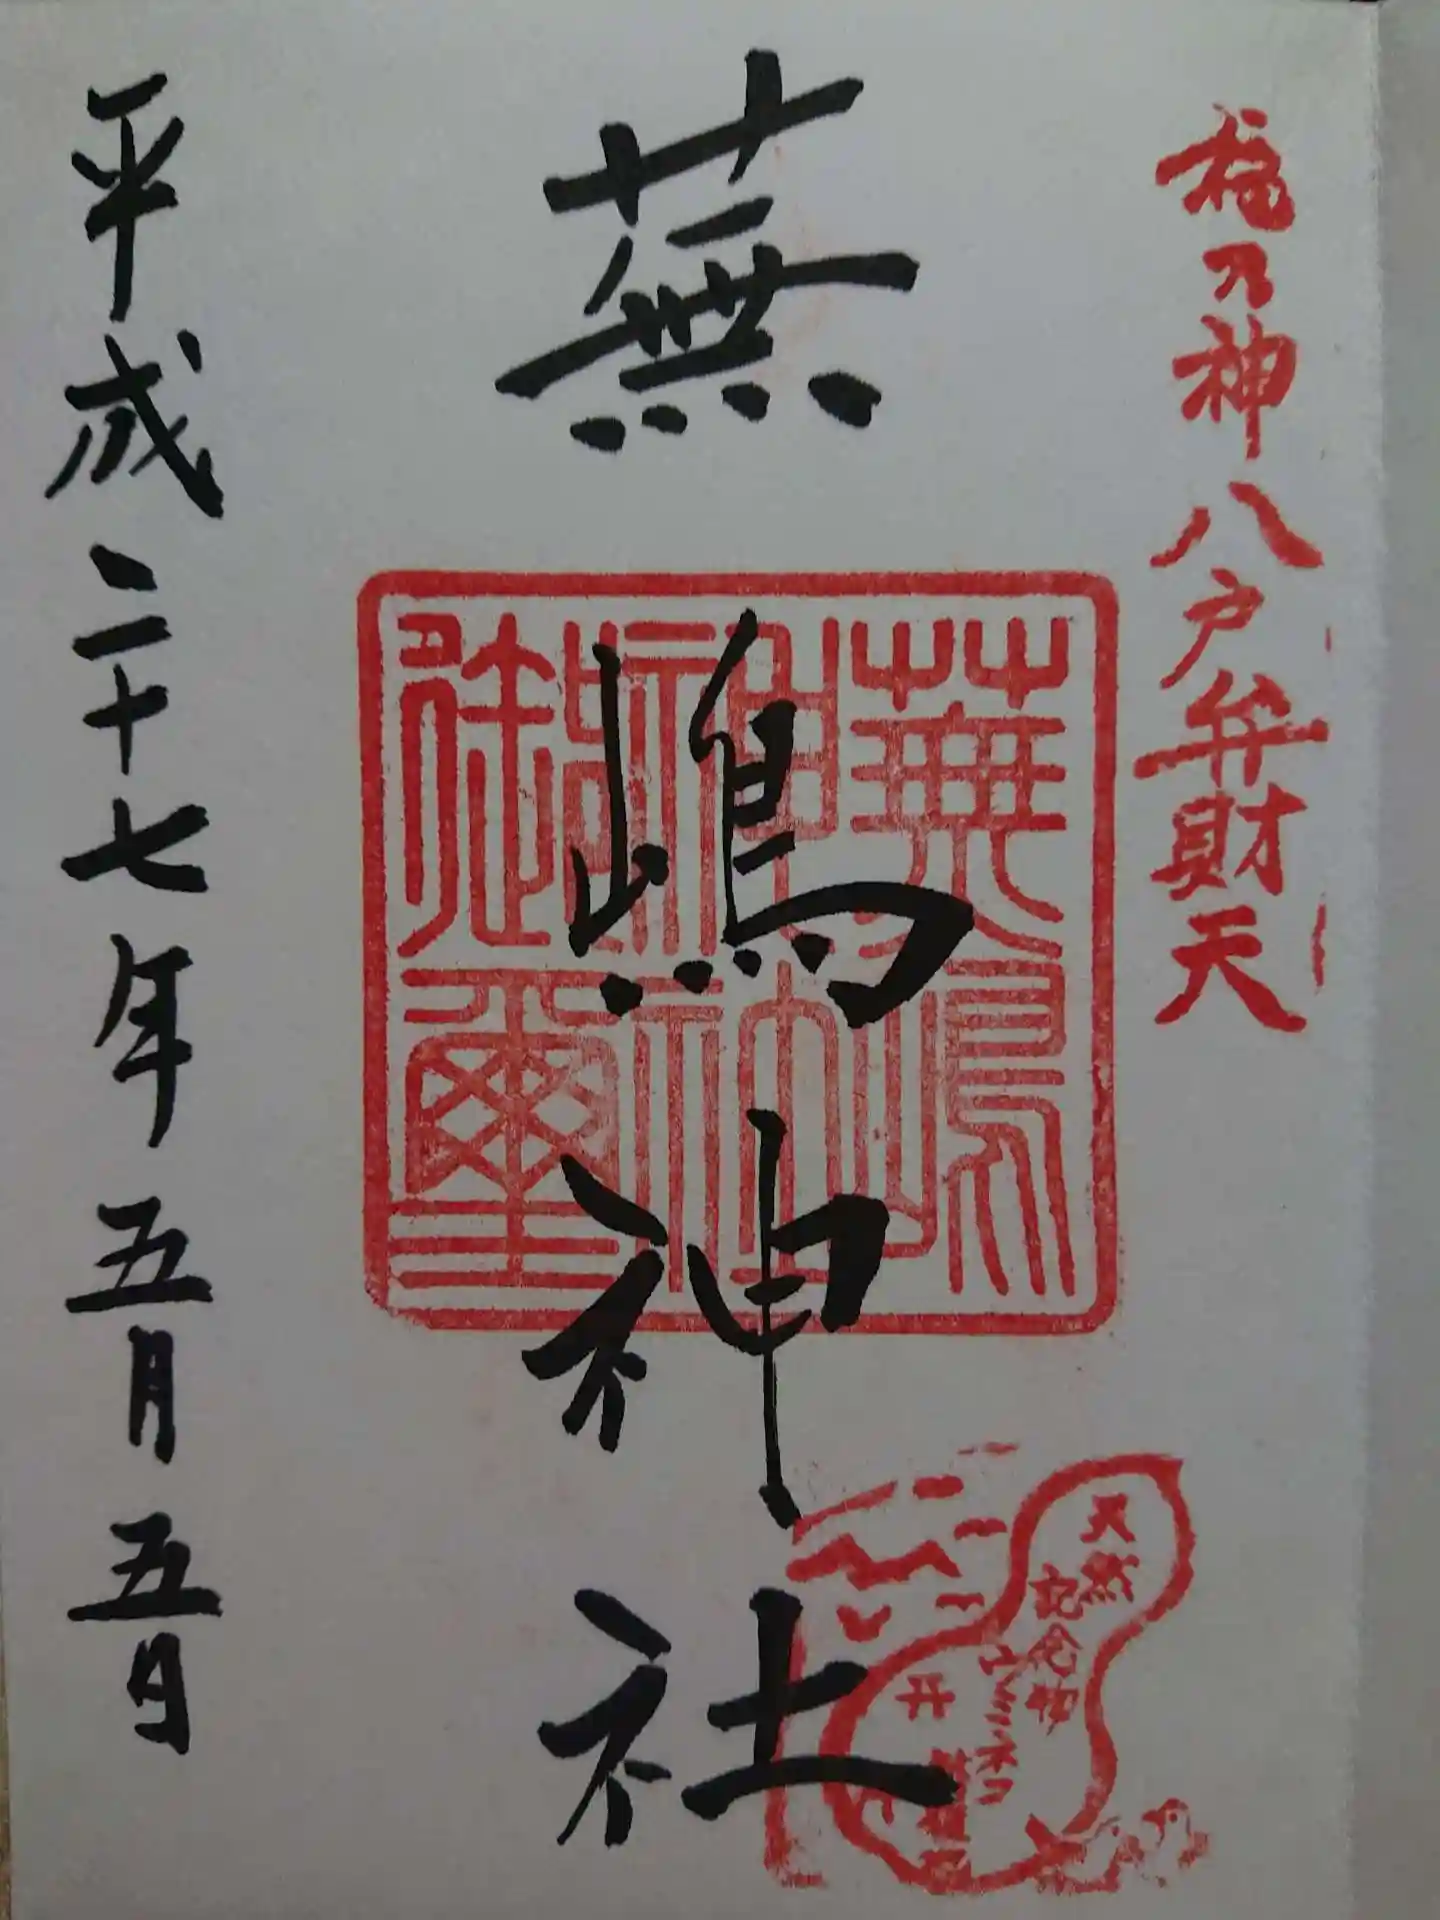 福乃神八戸弁財天
蕪嶋神社
蕪嶋
神社
御璽
天然
記念物
ウミネコ
平成二十七年五月五日